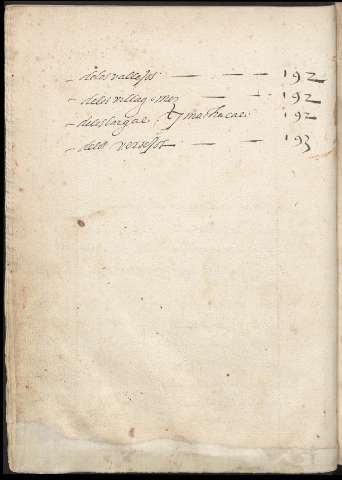 – delos vallejos — — — 192
– delos villagomez — — 192
– delos Vargas, y machucas. 192
– delos versosos — — 193